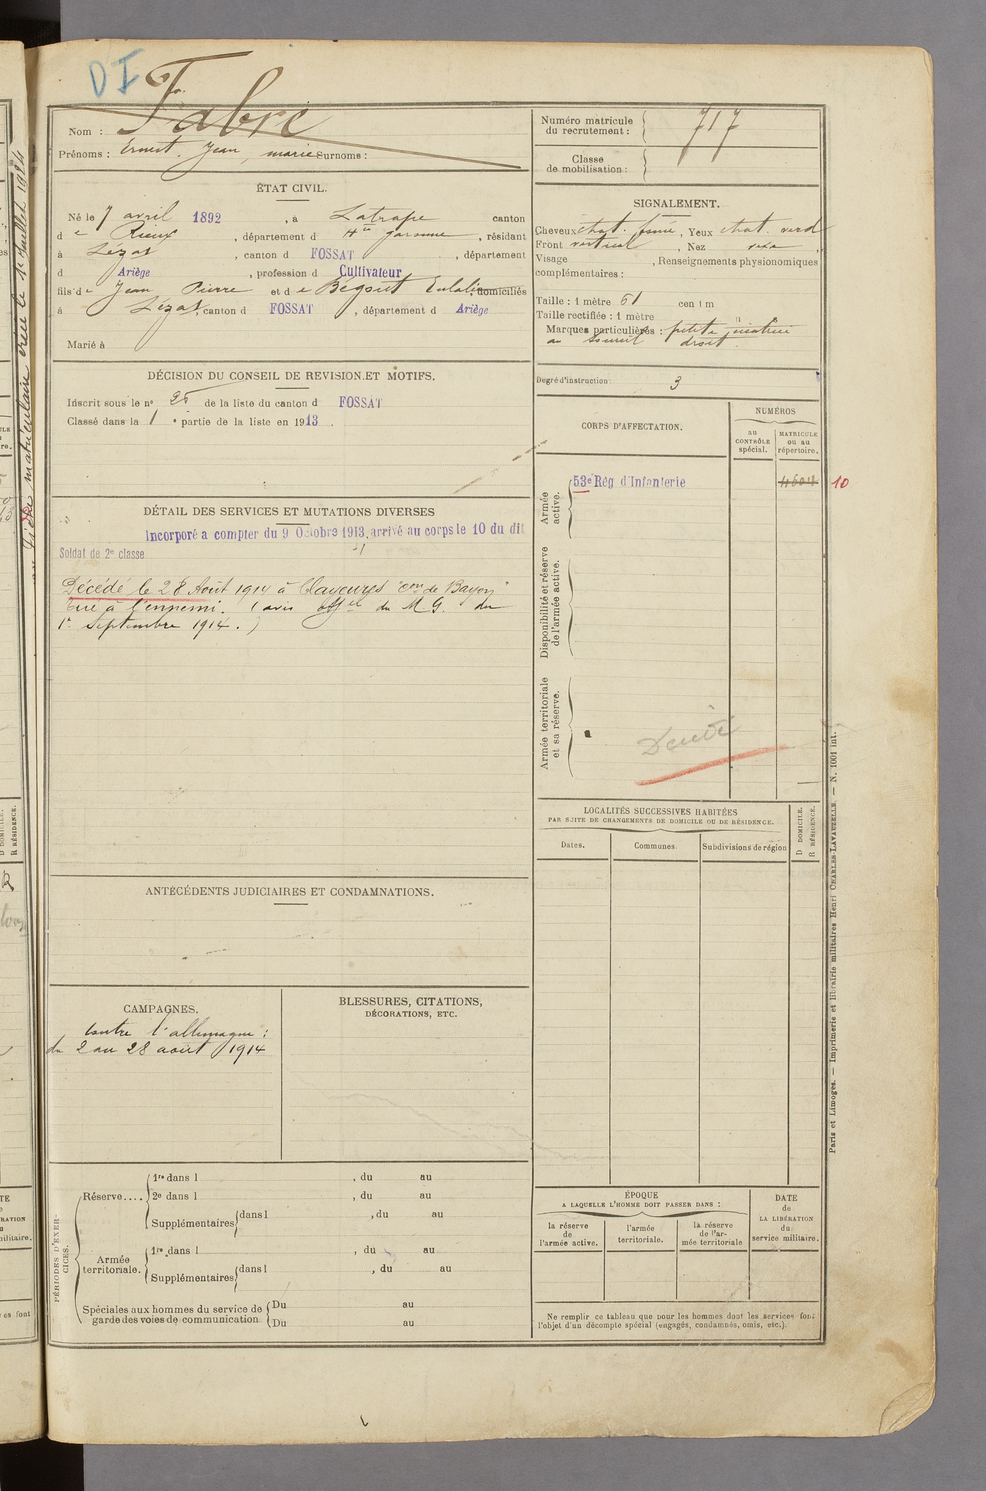 DI
Nom : Fabre
Prénoms : Ernest, Jean, marie Surnoms :
Numéro matricule du recrutement : 717
Classe de mobilisation :
ÉTAT CIVIL.
Né le 7 avril 1892, à Latrape canton
de Rieux, département d Hte garonne, résidant
à Lézat, canton d FOSSAT, département
d Ariège, profession d Cultivateur
fils de Jean Pierre et de Eulalie, domiciliés
à Lézat, canton d FOSSAT, département d Ariège
Marié à
SIGNALEMENT.
Cheveux chat. foncé, Yeux chat. verd
Front vertical, Nez
Visage , Renseignements physionomiques
complémentaires :
Taille : 1 mètre 61 centim
Taille rectifiée : 1 mètre
Marques particulières : petite cicatrice
au sourcil droit.
Degré d'instruction : 3
DÉCISION DU CONSEIL DE REVISION ET MOTIFS.
Inscrit sous le n° 25 de la liste du canton d FOSSAT
Classé dans la 1e partie de la liste en 1913
CORPS D'AFFECTATION.
NUMÉROS
au CONTRÔLE spécial.
MATRICULE ou au répertoire.
Armée active.
53e Rég d'Infanterie
4604 10
Disponibilité et réserve de l'armée active.
Armée territoriale et sa réserve.
DÉTAIL DES SERVICES ET MUTATIONS DIVERSES
Incorporé a compter du 9 Octobre 1913, arrivé au corps le 10 du dit
Soldat de 2e classe
Décédé le 28 Août 1914 à Clayeures con de Bayon
tué à l'ennemi. (avis offel du M G. du
1er Septembre 1914.)
LOCALITÉS SUCCESSIVES HABITÉES
PAR SUITE DE CHANGEMENTS DE DOMICILE OU DE RÉSIDENCE.
Dates.
Communes.
Subdivisions de région
D DOMICILE.
R RÉSIDENCE.
ANTÉCÉDENTS JUDICIAIRES ET CONDAMNATIONS.
CAMPAGNES.
Contre l'allemagne :
du 2 au 28 août 1914
BLESSURES, CITATIONS,
DÉCORATIONS, ETC.
PÉRIODES D'EXERCICES.
Réserve....
1re dans l , du au
2e dans l , du au
Supplémentaires dans l , du au
Armée territoriale.
1re dans l , du au
Supplémentaires dans l , du au
Spéciales aux hommes du service de
garde des voies de communication
Du au
Du au
ÉPOQUE
A LAQUELLE L'HOMME DOIT PASSER DANS :
la réserve de l'armée active.
l'armée territoriale.
la réserve de l'armée territoriale
DATE de LA LIBÉRATION du service militaire.
Ne remplir ce tableau que pour les hommes dont les services font
l'objet d'un décompte spécial (engagés, condamnés, omis, etc.).
Paris et Limoges. — Imprimerie et librairie militaires Henri CHARLES-LAVAUZELLE. — N. 1001 int.